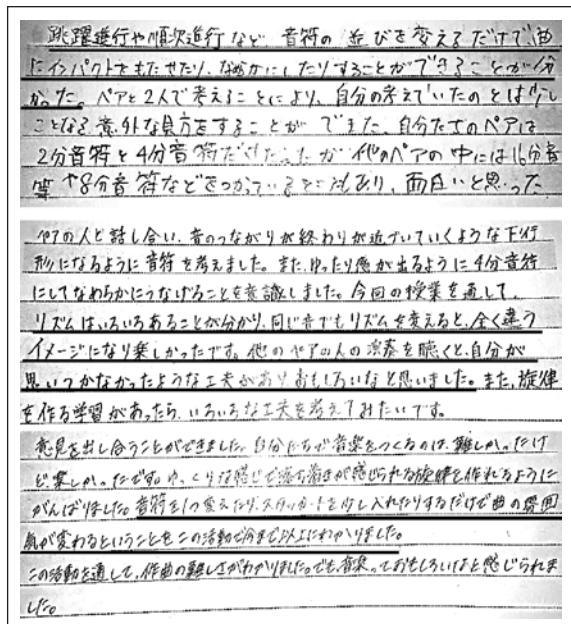 跳躍進行や順次進行など 音符の 並びを変えるだけで、曲
にインパクトをもたせたり、なめらかにしたりすることができることが分
かった。ペアと2人で考えることにより、自分の考えていたのとは少し
ことなる意外な見方をすることが できた。自分たちのペアは
2分音符と4分音符だけだったが 他のペアの中には16分音
符や8分音符などをつかっているところもあり、面白いと思った
ペアの人と話し合い、音のつながりが終わりが近づいていくような下行
形になるように音符を考えました。また、ゆったり感が出るように4分音符
にしてなめらかにつなげることを意識しました。今回の授業を通して、
リズムはいろいろあることが分かり、同じ音でもリズムを変えると、全く違う
イメージになり楽しかったです。他のペアの人の演奏を聴くと、自分が
思いつかなかったような工夫があり、おもしろいなと思いました。また、旋律
を作る学習があったら、いろいろな工夫を考えてみたいです。
意見を出し合うことができました。自分たちで音楽をつくるのは、難しかったけ
ど楽しかったです。ゆっくりな感じで落ち着きが感じられる旋律を作れるように
がんばりました。音符を1つ変えたり、スタッカートを少し入れたりするだけで曲の雰囲
気が変わるということを この活動で今まで以上にわかりました。
この活動を通して、作曲の難しさがわかりました。でも、音楽っておもしろいなと感じられま
した。